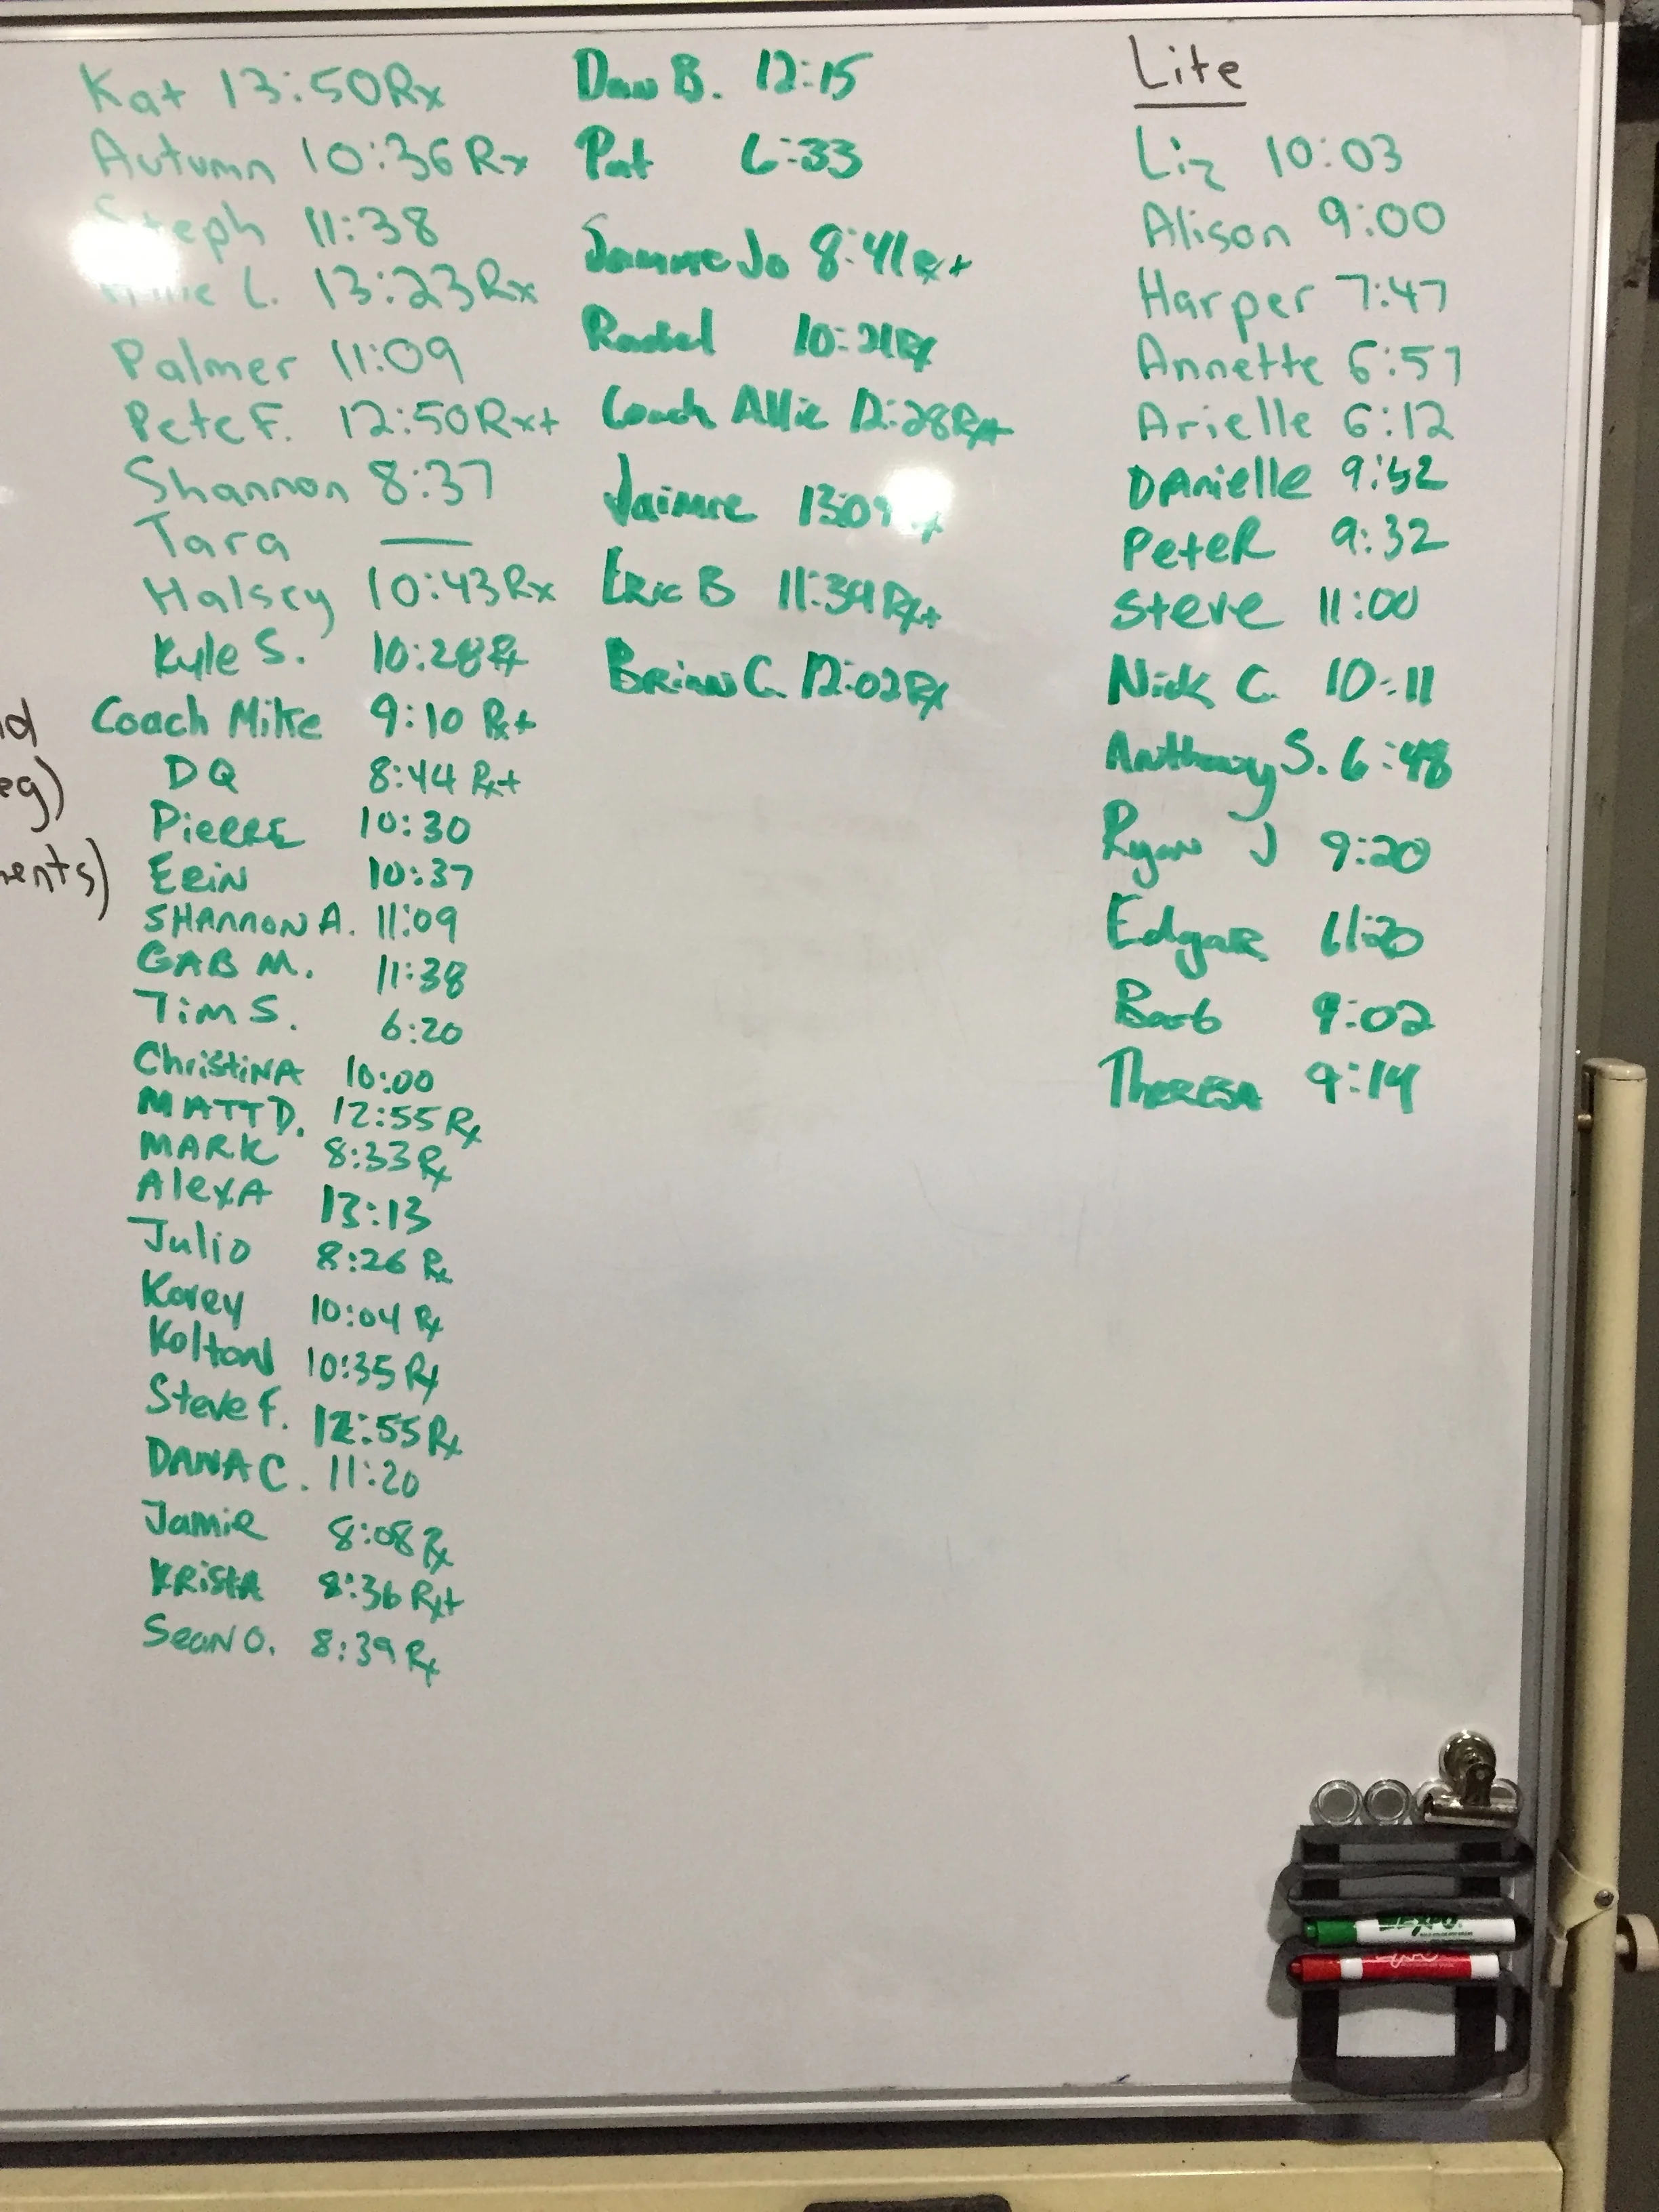 Kat 13:50 Rx
Autumn 10:36 Rx
Steph 11:38
L. 13:23 Rx
Palmer 11:09
Pete F. 12:50 Rx+
Shannon 8:37
Tara —
Halsey 10:43 Rx
Kyle S. 10:28 Rx
Coach Mike 9:10 Rx+
DQ 8:44 Rx+
PiERRE 10:30
ERiN 10:37
SHANNON A. 11:09
GAB M. 11:38
Tim S. 6:20
ChristiNA 10:00
MATT D. 12:55 Rx
MARK 8:33 Rx
AlexA 13:13
Julio 8:26 Rx
Korey 10:04 Rx
KoltoN 10:35 Rx
Steve F. 12:55 Rx
DANA C. 11:20
Jamie 8:08 Rx
KRistA 8:36 Rx+
SeaN O. 8:39 Rx
Dan B. 12:15
Pat 6:33
Jo 8:41 Rx+
Rachel 10:21 Rx
Coach Allie 12:28 Rx+
Jaimie
ERic B 11:39 Rx+
BRiaN C. 12:02 Rx
Lite
Liz 10:03
Alison 9:00
Harper 7:47
Annette 6:57
Arielle 6:12
DAnielle 9:52
PeteR 9:32
Steve 11:00
Nick C. 10:11
Anthony S. 6:48
Ryan J 9:20
EdgaR
Barb 9:02
TheRESA 9:14
eg)
ents)